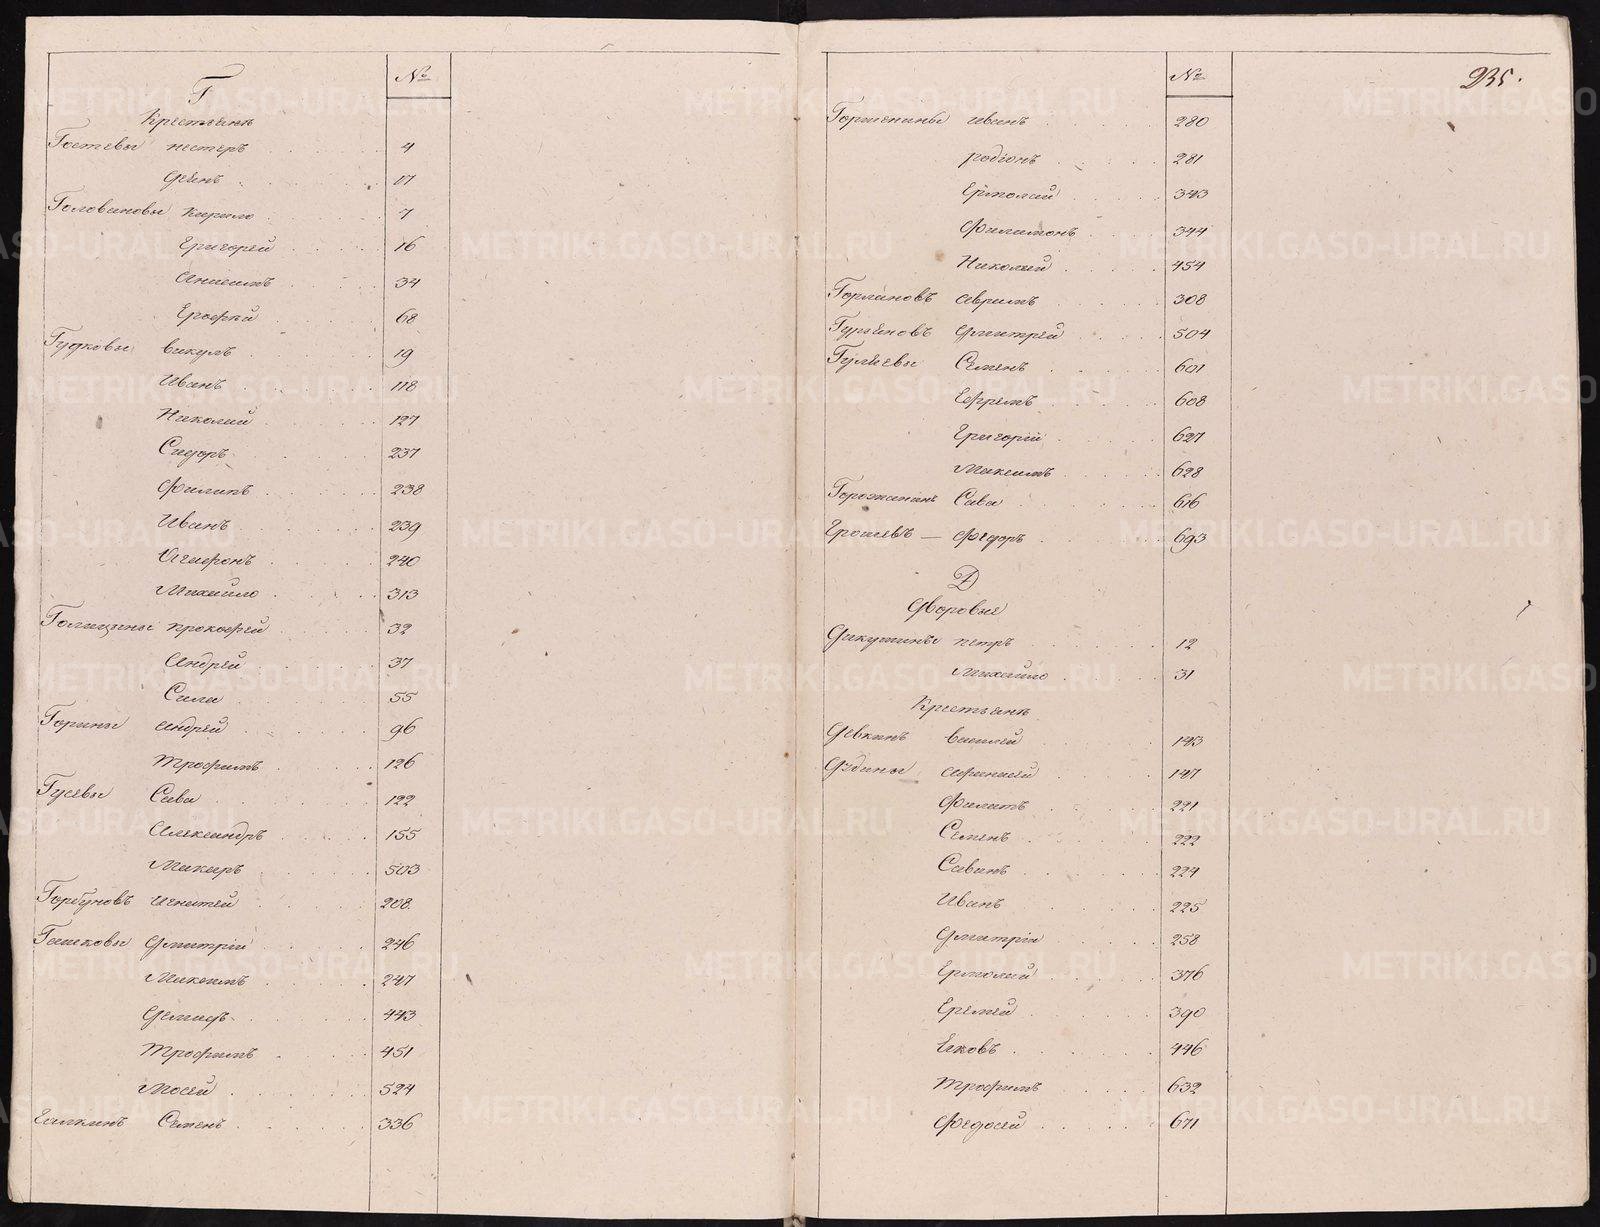 Г
№
Крестьянъ
Гостевы нестеръ 4
Фёнъ 17
Головановы Кирило 7
Григорей 16
Анисимъ 34
Ерофей 68
Гудковы викулъ 19
Иванъ 118
Николай 127
Сидоръ 237
Филипъ 238
Иванъ 239
Агафонъ 240
Михайло 313
Голицыны прокофей 32
Андрей 37
Сила 55
Горины андрей 96
трофимъ 126
Гусевы Сава 122
Александръ 155
Макаръ 503
Горбуновъ игнатей 208
Гашковы дмитрiи 246
Максимъ 247
Демидъ 443
трофимъ 451
Мосей 524
Галкинъ Семенъ 336
№
235.
Горшенины иванъ 280
родiонъ 281
Ермолай 343
Филимонъ 344
Николай 454
Горлановъ аврамъ 308
Гурьяновъ дмитрей 504
Гуляевы Семенъ 601
Ефремъ 608
Григорiи 627
Максимъ 628
Горожанинъ Сава 616
Грошевъ — Федоръ 693
Д
дворовые
Дикушины петръ 12
Михайло 31
Крестьянъ
Девкинъ василей 143
Дудины афанасей 147
Филатъ 221
Семенъ 222
Саванъ 224
Иванъ 225
дмитрiи 258
Ермолай 376
Еремей 390
Яковъ 446
трофимъ 632
Федосей 671
METRIKI.GASO-URAL.RU